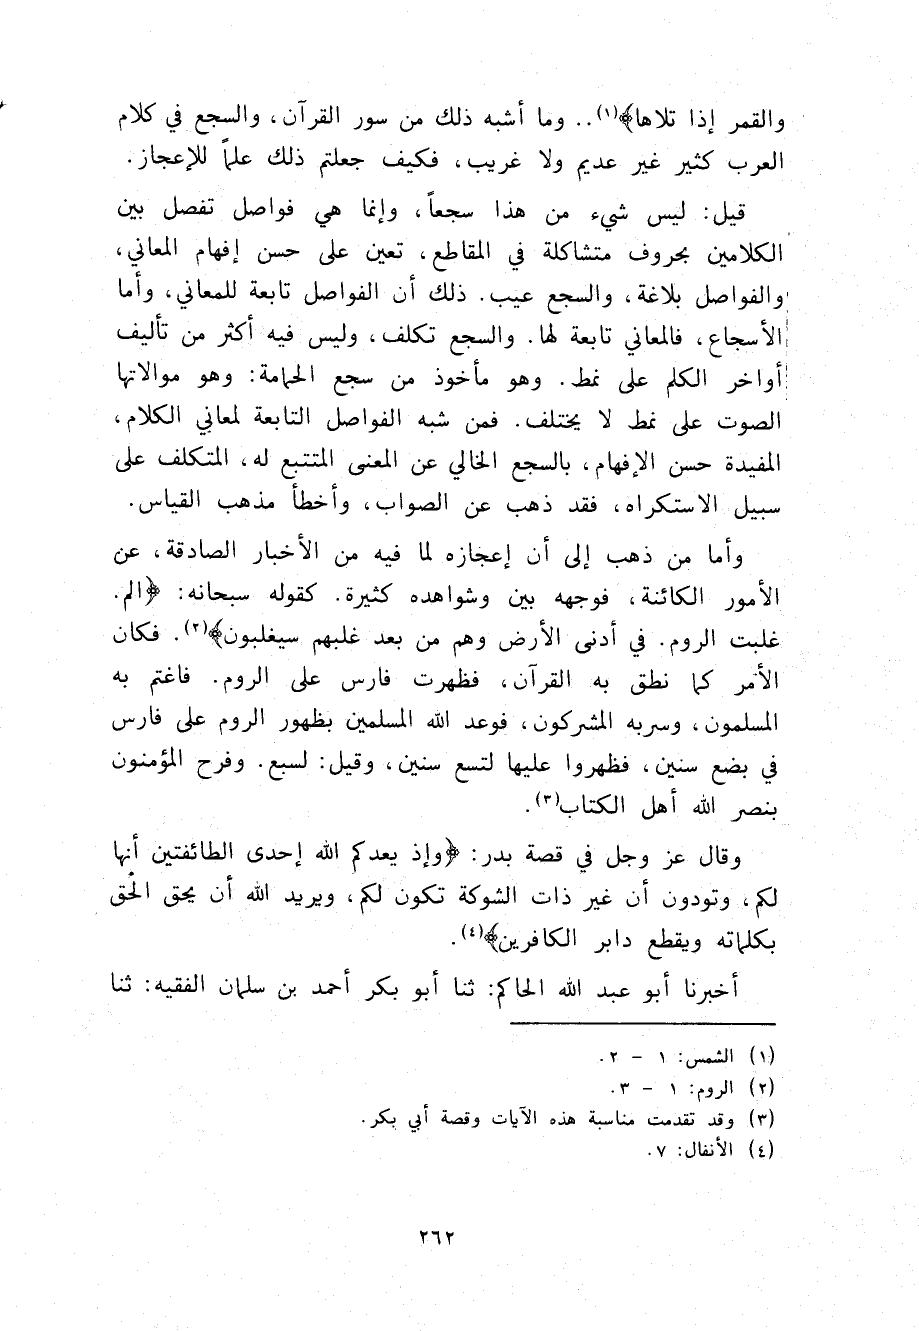 والقمر إذا تلاها﴾(١).. وما أشبه ذلك من سور القرآن، والسجع في كلام
العرب كثير غير عديم ولا غريب، فكيف جعلتم ذلك علماً للإعجاز.
قيل: ليس شيء من هذا سجعاً، وإنما هي فواصل تفصل بين
الكلامين بحروف متشاكلة في المقاطع، تعين على حسن إفهام المعاني،
والفواصل بلاغة، والسجع عيب. ذلك أن الفواصل تابعة للمعاني، وأما
الأسجاع، فالمعاني تابعة لها. والسجع تكلف، وليس فيه أكثر من تأليف
أواخر الكلم على نمط. وهو مأخوذ من سجع الحمامة: وهو موالاتها
الصوت على نمط لا يختلف. فمن شبه الفواصل التابعة لمعاني الكلام،
المفيدة حسن الإفهام، بالسجع الخالي عن المعنى المتتبع له، المتكلف على
سبيل الاستكراه، فقد ذهب عن الصواب، وأخطأ مذهب القياس.
وأما من ذهب إلى أن إعجازه لما فيه من الأخبار الصادقة، عن
الأمور الكائنة، فوجهه بين وشواهده كثيرة. كقوله سبحانه: ﴿الم.
غلبت الروم. في أدنى الأرض وهم من بعد غلبهم سيغلبون﴾(٢). فكان
الأمر كما نطق به القرآن، فظهرت فارس على الروم. فاغتم به
المسلمون، وسربه المشركون، فوعد الله المسلمين بظهور الروم على فارس
في بضع سنين، فظهروا عليها لتسع سنين، وقيل: لسبع. وفرح المؤمنون
بنصر الله أهل الكتاب(٣).
وقال عز وجل في قصة بدر: ﴿وإذ يعدكم الله إحدى الطائفتين أنها
لكم، وتودون أن غير ذات الشوكة تكون لكم، ويريد الله أن يحق الحق
بكلماته ويقطع دابر الكافرين﴾(٤).
أخبرنا أبو عبد الله الحاكم: ثنا أبو بكر أحمد بن سلمان الفقيه: ثنا
(١) الشمس: ١ - ٢.
(٢) الروم: ١ - ٣.
(٣) وقد تقدمت مناسبة هذه الآيات وقصة أبي بكر.
(٤) الأنفال: ٧.
٢٦٢